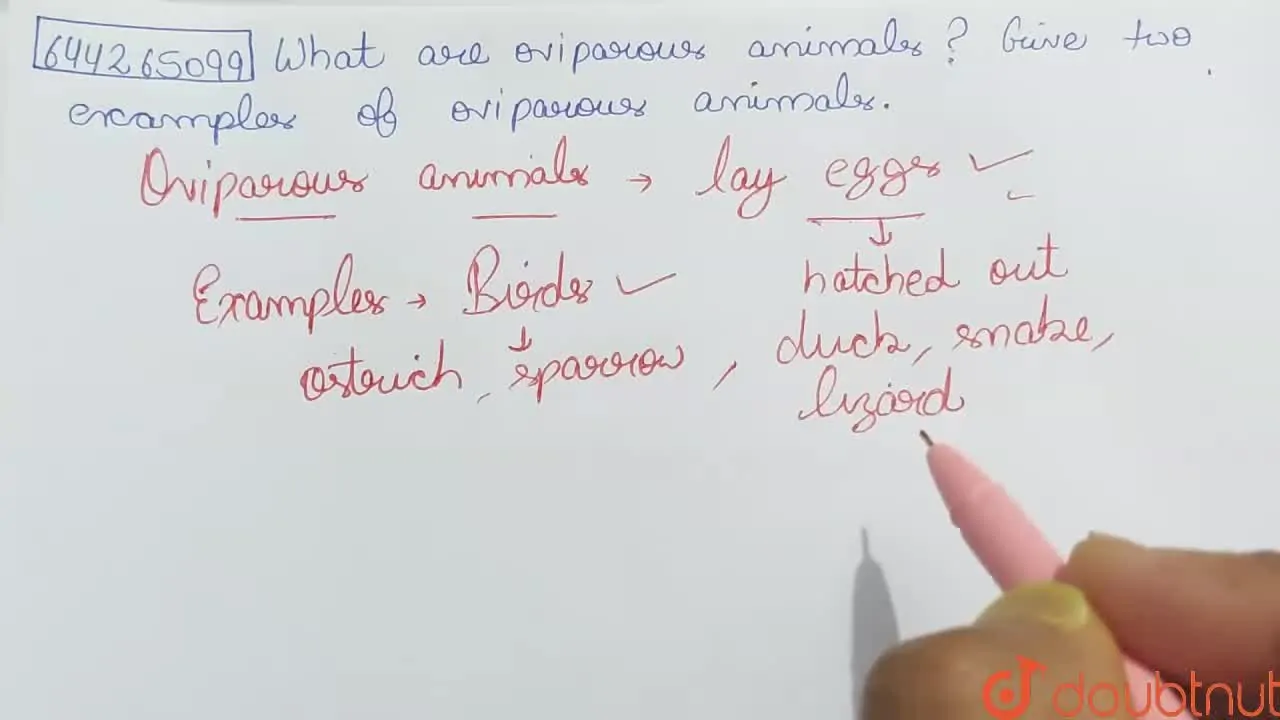 644265099 What are oviparous animals? Give two
examples of oviparous animals.
Oviparous animals → lay eggs ✓
↓
hatched out
Examples → Birds ✓
↓
ostrich, sparrow, duck, snake,
lizard
doubtnut